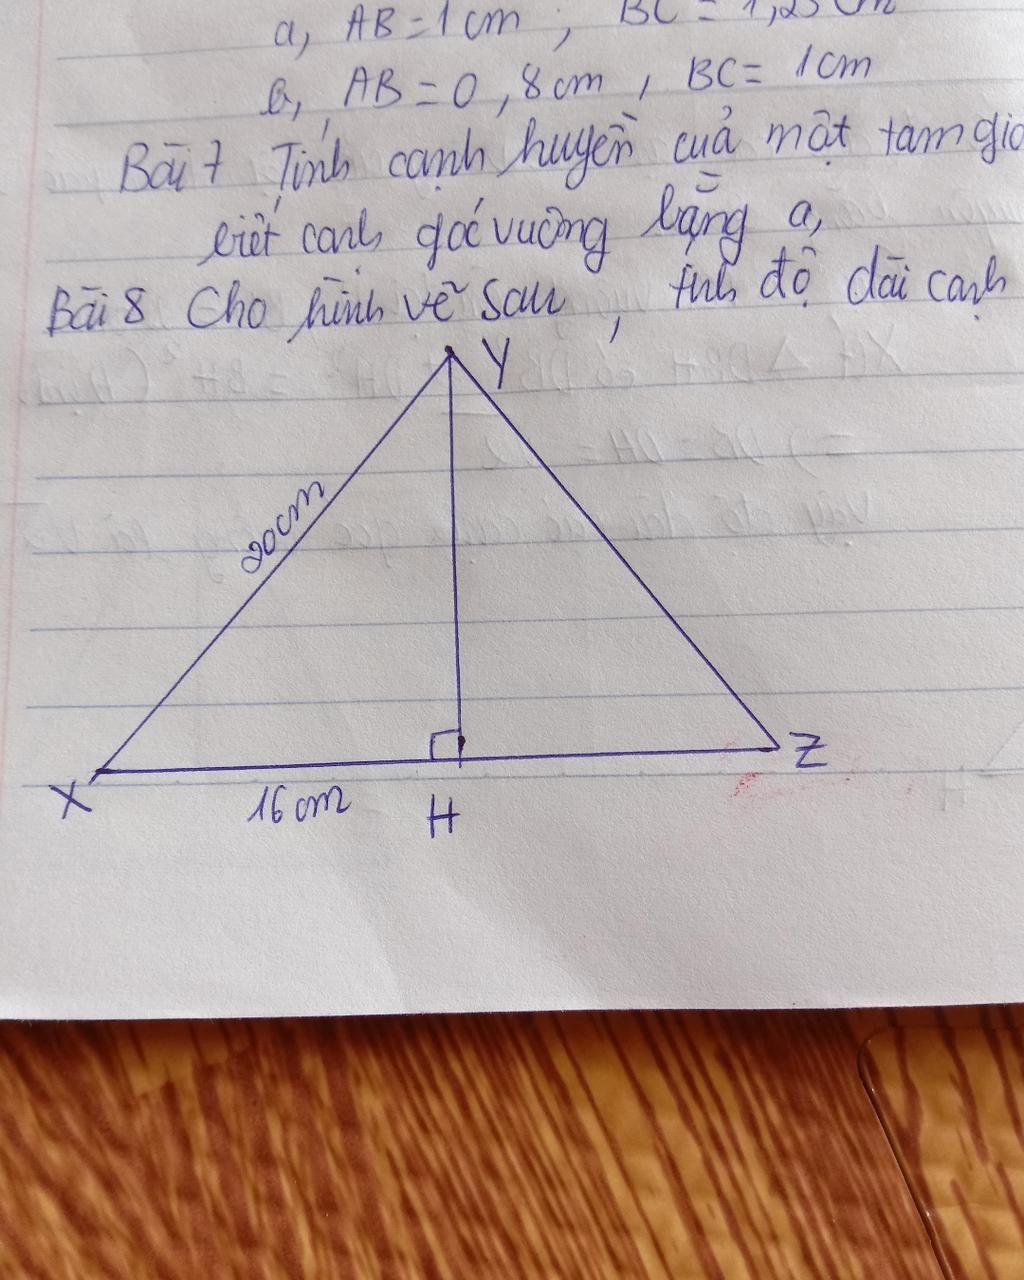 a, AB = 1 cm ; BC = 1,25 cm
b, AB = 0,8 cm, BC = 1 cm
Bài 7 Tính cạnh huyền của một tam giá
biết cạnh góc vuông bằng a,
Bài 8 Cho hình vẽ sau, tính độ dài cạnh
Y
20cm
X
Z
16 cm
H